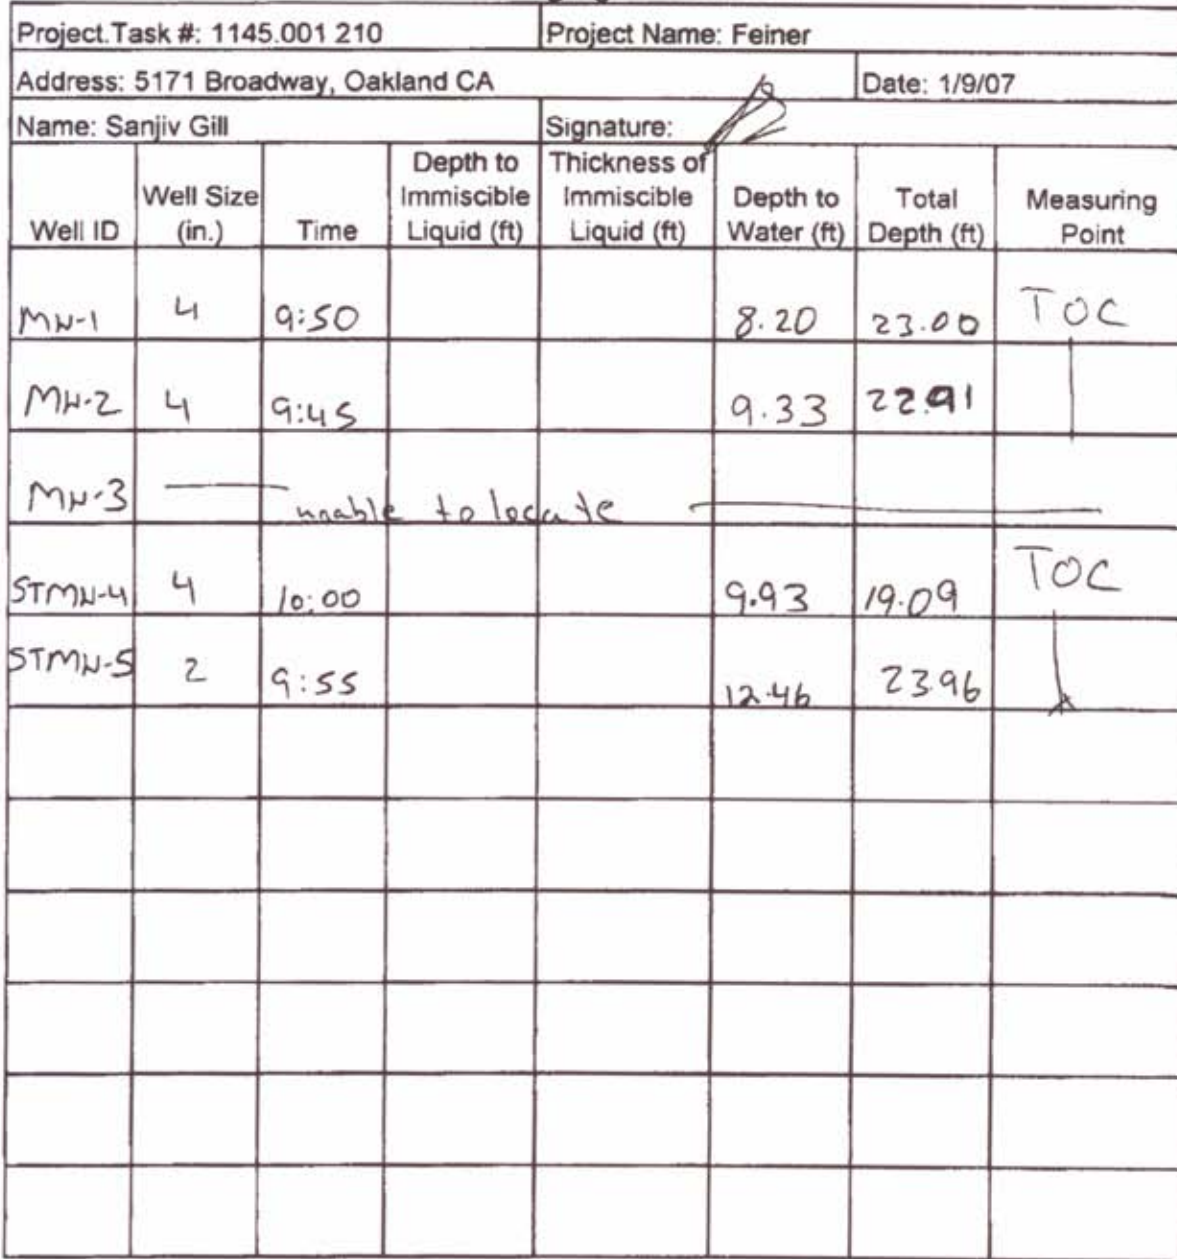 Project.Task #: 1145.001 210 Project Name: Feiner
Address: 5171 Broadway, Oakland CA Date: 1/9/07
Name: Sanjiv Gill Signature:
Well ID Well Size (in.) Time Depth to Immiscible Liquid (ft) Thickness of Immiscible Liquid (ft) Depth to Water (ft) Total Depth (ft) Measuring Point
MW-1 4 9:50 8.20 23.00 TOC
MW-2 4 9:45 9.33 22.91
MW-3 unable to locate
STMW-4 4 10:00 9.93 19.09 TOC
STMW-5 2 9:55 12.46 23.96